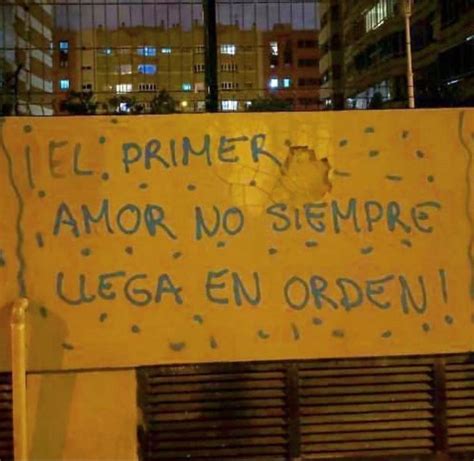 ¡EL PRIMER
AMOR NO SIEMPRE
LLEGA EN ORDEN!